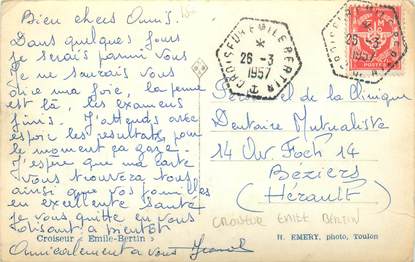 Bien chers Amis.
Dans quelques jours
je serais parmi vous
Je ne saurais vous
dire ma joie, la femme
est là, les examens
finis. J'attends avec
espoir les resultats, pour
le moment ça gaze.
J'espère que ma carte
vous trouvera tous
ainsi que vos familles
en excellente santé
je vous quitte en vous
disant a bientôt
Amicalement a vous
CROISEUR EMILE BERTIN
26 - 3
1957
CROISEUR EMILE BERTIN
26 - 3
1957
POSTES
Personnel de la Clinique
Dentaire Mutualiste
14 Av. Foch 14
Béziers
(Hérault)
CROISEUR EMILE BERTIN
Croiseur « Emile-Bertin »
H. EMERY, photo, Toulon